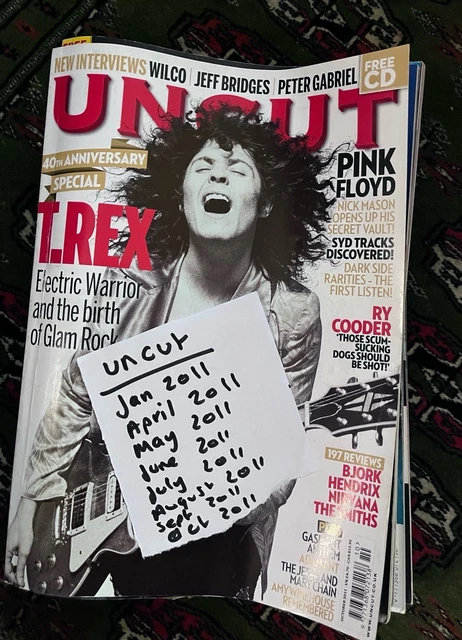 FREE
NEW INTERVIEWS WILCO | JEFF BRIDGES | PETER GABRIEL
FREE
CD
UNCUT
40TH ANNIVERSARY
SPECIAL
T.REX
Electric Warrior
and the birth
of Glam Rock
PINK
FLOYD
NICK MASON
OPENS UP HIS
SECRET VAULT!
SYD TRACKS
DISCOVERED!
DARK SIDE
RARITIES – THE
FIRST LISTEN!
RY
COODER
'THOSE SCUM-
SUCKING
DOGS SHOULD
BE SHOT!'
uncut
Jan 2011
April 2011
May 2011
June 2011
July 2011
August 2011
Sept 2011
Oct 2011
197 REVIEWS
BJORK
HENDRIX
NIRVANA
THE SMITHS
PLUS
THE JESUS AND
MARY CHAIN
AMY WINEHOUSE
REMEMBERED
OCTOBER 2011
WWW.UNCUT.CO.UK